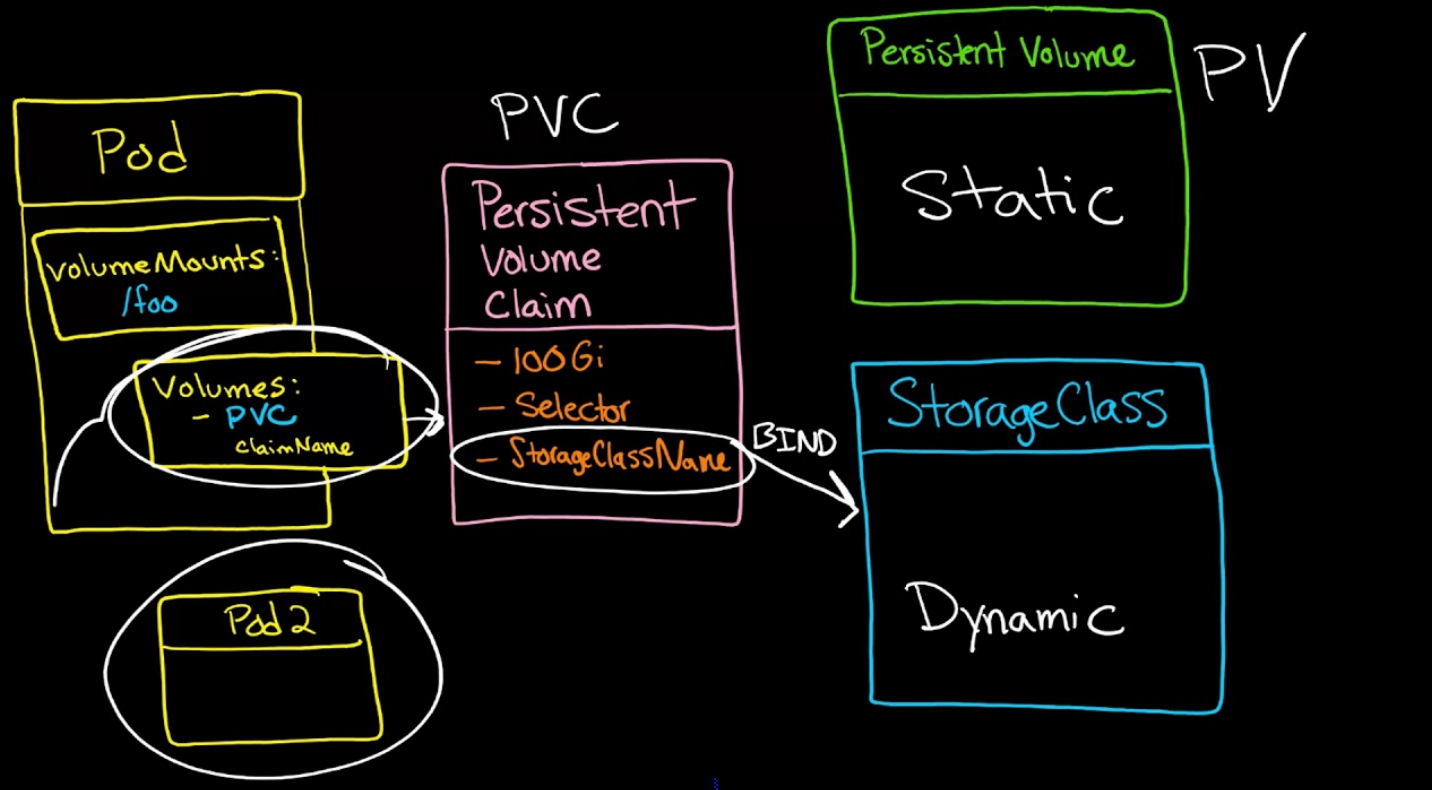 Pod
volumeMounts:
/foo
Volumes:
- PVC
claimName
Pod 2
PVC
Persistent
Volume
Claim
- 100Gi
- Selector
- StorageClassName
BIND
Persistent Volume
PV
Static
StorageClass
Dynamic